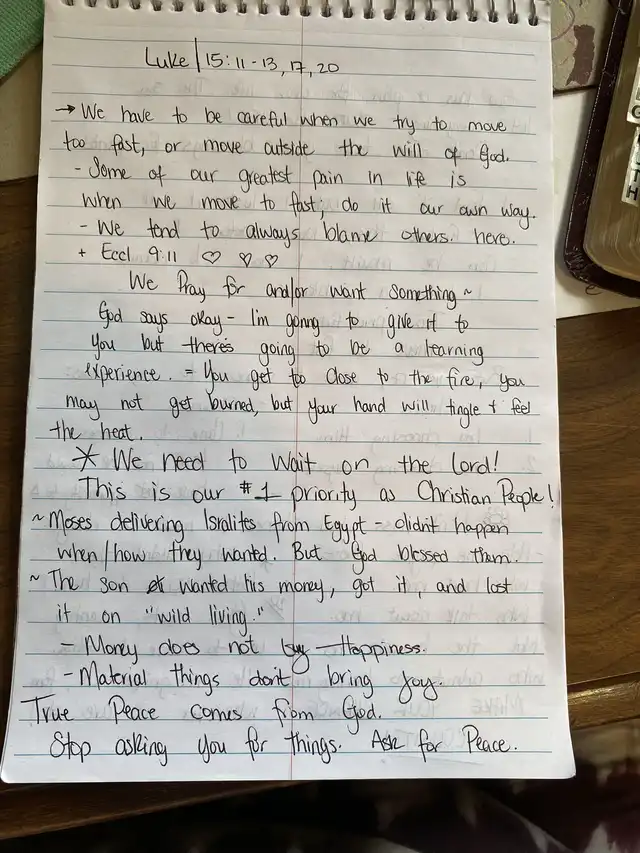 Luke | 15:11-13, 17, 20
→ We have to be careful when we try to move
too fast, or move outside the will of God.
- Some of our greatest pain in life is
when we move to fast; do it our own way.
- We tend to always blame others. here.
+ Eccl 9:11 ♡ ♡ ♡
We Pray for and/or want something ~
God says okay - I'm gonna to give it to
you but there's going to be a learning
experience. = You get too close to the fire, you
may not get burned, but your hand will tingle + feel
the heat.
* We need to Wait on the Lord!
This is our #1 priority as Christian People!
~ Moses delivering Isralites from Egypt - didn't happen
when/how they wanted. But God blessed them.
~ The son wanted his money, got it, and lost
it on "wild living."
- Money does not buy Happiness.
- Material things don't bring joy.
True Peace comes from God.
Stop asking you for things. Ask for Peace.